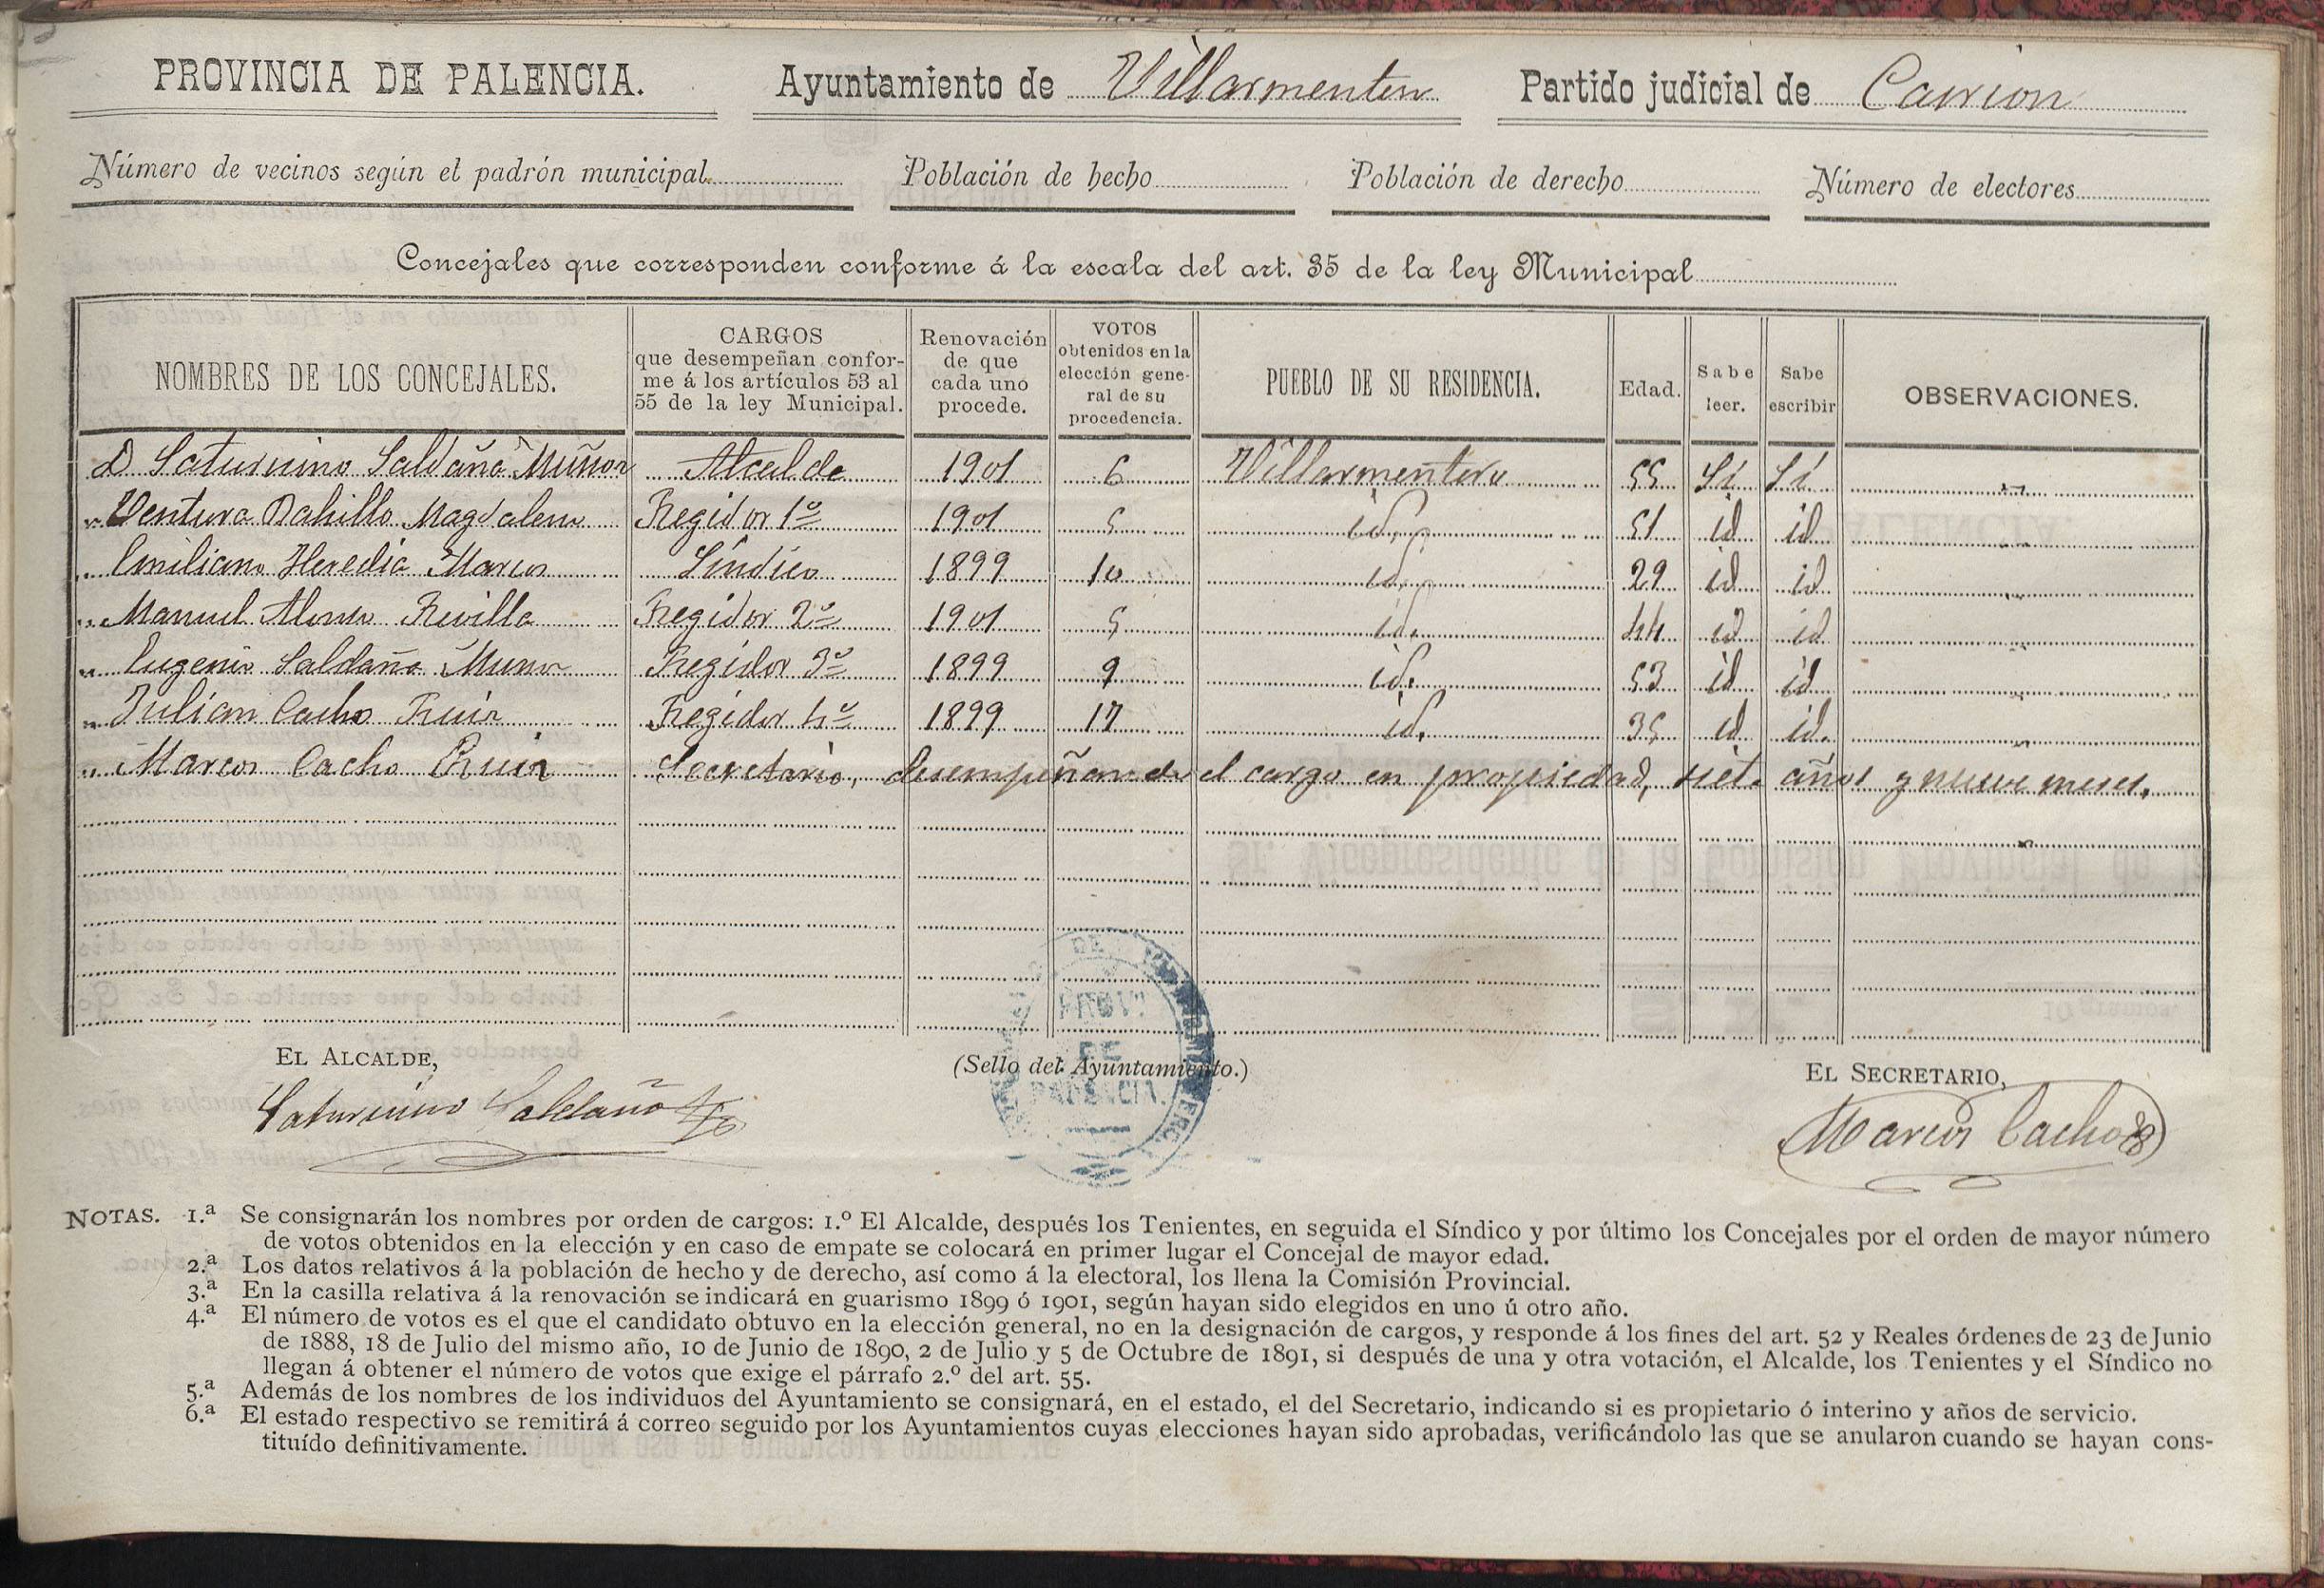 PROVINCIA DE PALENCIA. Ayuntamiento de Villarmentero Partido judicial de Carrion
Número de vecinos según el padrón municipal Población de hecho Población de derecho Número de electores
Concejales que corresponden conforme á la escala del art. 35 de la ley Municipal
NOMBRES DE LOS CONCEJALES.
CARGOS
que desempeñan confor-
me á los artículos 53 al
55 de la ley Municipal.
Renovación
de que
cada uno
procede.
VOTOS
obtenidos en la
elección gene-
ral de su
procedencia.
PUEBLO DE SU RESIDENCIA.
Edad.
Sabe
leer.
Sabe
escribir
OBSERVACIONES.
D Saturnino Saldaña Muñoz Alcalde 1901 6 Villarmentero 55 Sí Sí "
" Ventura Dahillo Magdaleno Regidor 1º 1901 5 id. 51 id id "
" Emiliano Heredia Marcos Síndico 1899 10 id. 29 id id "
" Manuel Alonso Revilla Regidor 2º 1901 5 id. 44 id id "
" Eugenio Saldaña Munoz Regidor 3º 1899 9 id. 53 id id "
" Julian Cacho Ruiz Regidor 4º 1899 17 id. 35 id id. "
" Marcos Cacho Ruiz Secretario, desempeñando el cargo en propiedad, siete años y nueve meses.
EL ALCALDE, (Sello del Ayuntamiento.) EL SECRETARIO,
PROV.
DE
PALENCIA.
Saturnino Saldaña Marcos Cacho
NOTAS. 1.ª Se consignarán los nombres por orden de cargos: 1.º El Alcalde, después los Tenientes, en seguida el Síndico y por último los Concejales por el orden de mayor número
de votos obtenidos en la elección y en caso de empate se colocará en primer lugar el Concejal de mayor edad.
2.ª Los datos relativos á la población de hecho y de derecho, así como á la electoral, los llena la Comisión Provincial.
3.ª En la casilla relativa á la renovación se indicará en guarismo 1899 ó 1901, según hayan sido elegidos en uno ú otro año.
4.ª El número de votos es el que el candidato obtuvo en la elección general, no en la designación de cargos, y responde á los fines del art. 52 y Reales órdenes de 23 de Junio
de 1888, 18 de Julio del mismo año, 10 de Junio de 1890, 2 de Julio y 5 de Octubre de 1891, si después de una y otra votación, el Alcalde, los Tenientes y el Síndico no
llegan á obtener el número de votos que exige el párrafo 2.º del art. 55.
5.ª Además de los nombres de los individuos del Ayuntamiento se consignará, en el estado, el del Secretario, indicando si es propietario ó interino y años de servicio.
6.ª El estado respectivo se remitirá á correo seguido por los Ayuntamientos cuyas elecciones hayan sido aprobadas, verificándolo las que se anularon cuando se hayan cons-
tituído definitivamente.